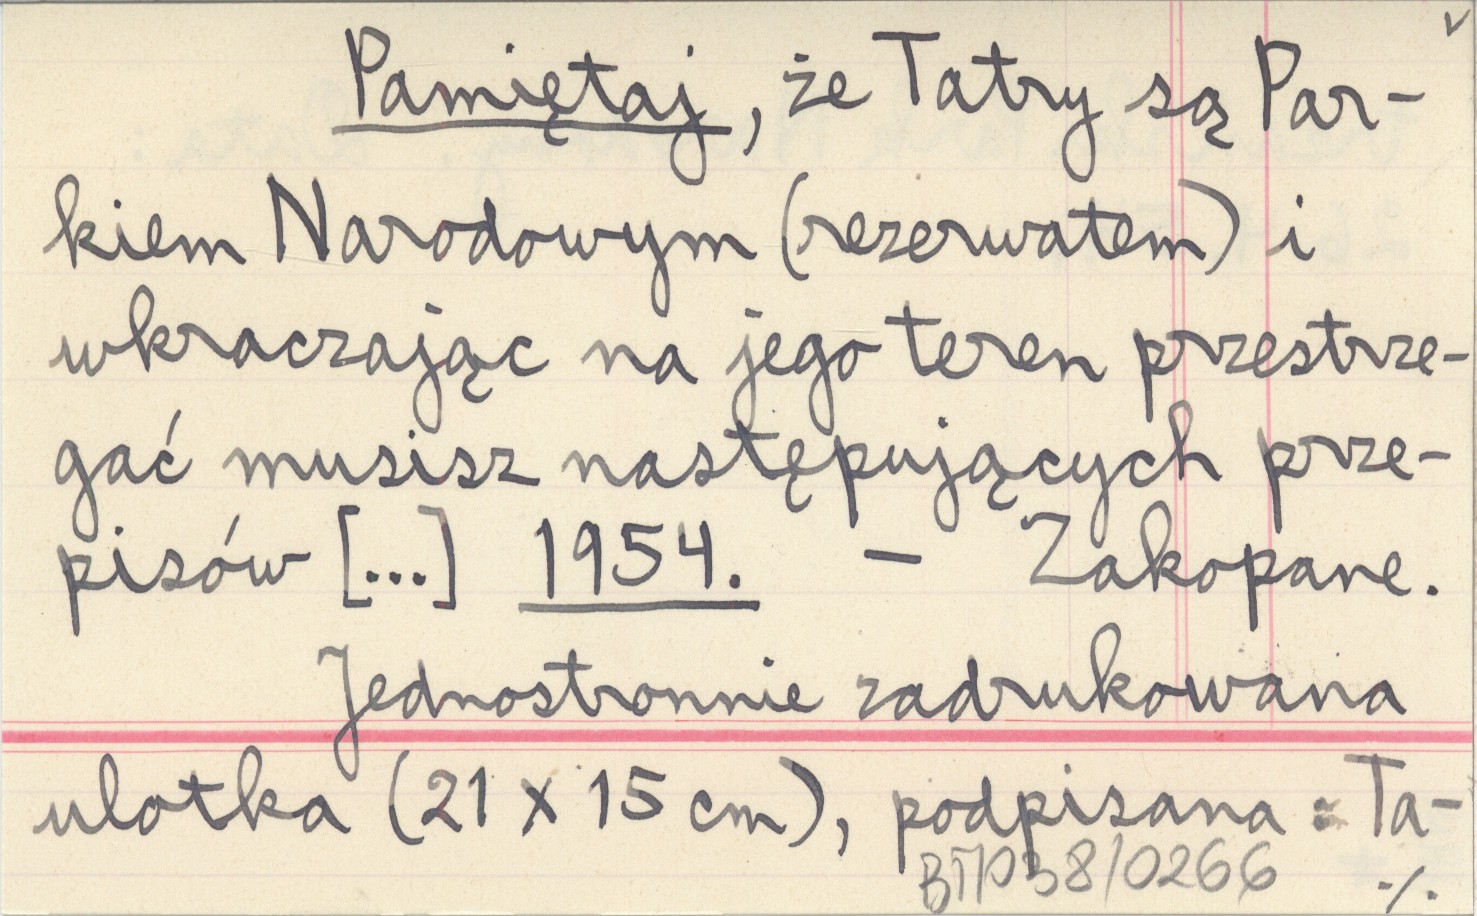 Pamiętaj, że Tatry są Par-
kiem Narodowym (rezerwatem) i
wkraczając na jego teren przestrze-
gać musisz następujących prze-
pisów [...] 1954. — Zakopane.
Jednostronnie zadrukowana
ulotka (21 x 15 cm), podpisana: Ta-
8/0266
./.